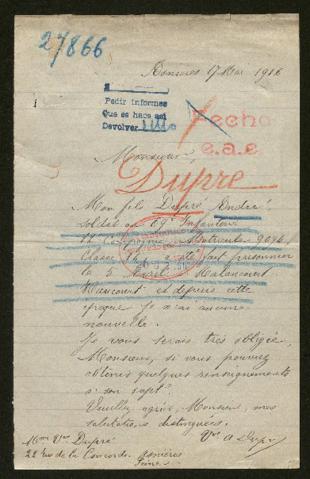 27866
Asnières 17 Mai 1916
Pedir informes
Que se hace así
Devolver
Fecho
e.a.e.
Monsieur,
Dupré
Mon fils Dupré André
soldat au 69e Infanterie
12e Compagnie Matricule
Classe 14 a été fait prisonnier
le 5 Avril à Malancourt
Haucourt et depuis cette
époque je n'ai aucune
nouvelle.
Je vous serais très obligée,
Monsieur, si vous pouviez
obtenir quelques renseignements
à son sujet.
Veuillez agréer, Monsieur, mes
salutations distinguées.
Vve A Dupré
Mme Vve Dupré
22 rue de la Concorde Asnières
Seine